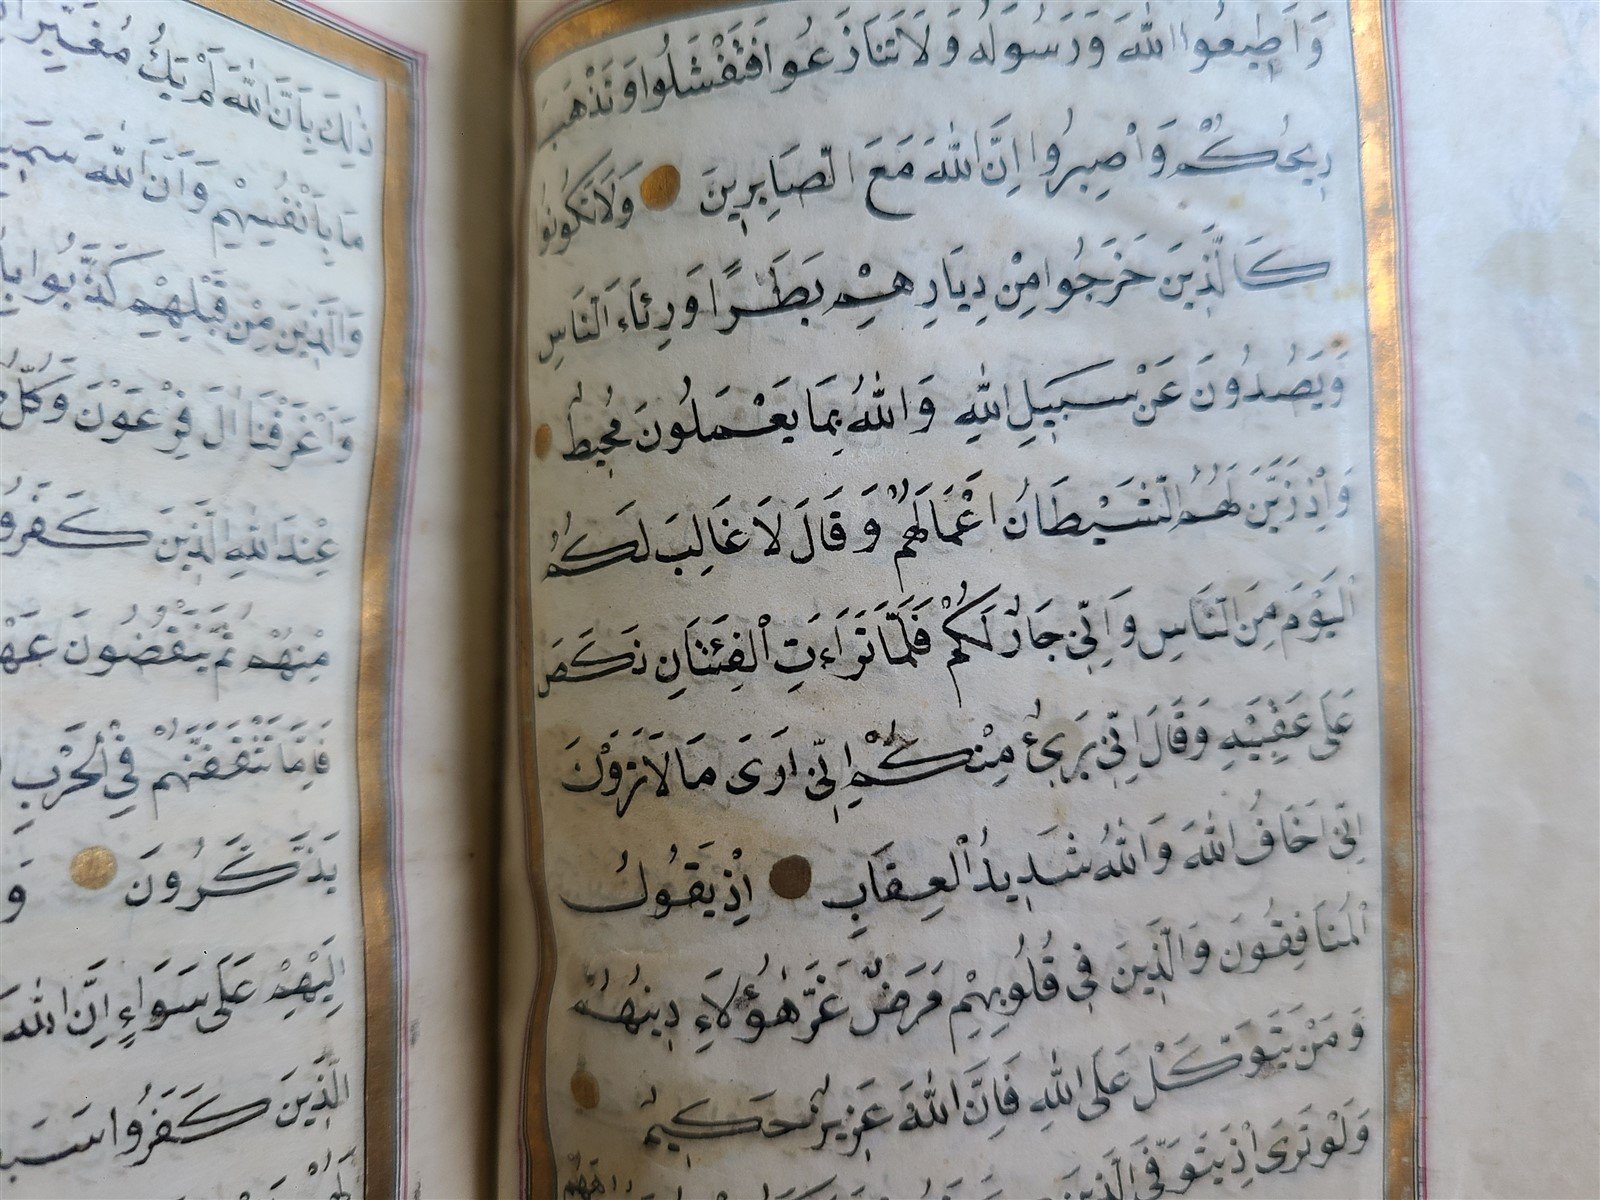 وَاَطِيعُوا اللّٰهَ وَرَسُولَهُ وَلَا تَنَازَعُوا فَتَفْشَلُوا وَتَذْهَبَ
رِيحُكُمْ وَاصْبِرُوا اِنَّ اللّٰهَ مَعَ الصَّابِرِينَ وَلَا تَكُونُوا
كَالَّذِينَ خَرَجُوا مِنْ دِيَارِهِمْ بَطَرًا وَرِئَاءَ النَّاسِ
وَيَصُدُّونَ عَنْ سَبِيلِ اللّٰهِ وَاللّٰهُ بِمَا يَعْمَلُونَ مُحِيطٌ
وَاِذْ زَيَّنَ لَهُمُ الشَّيْطَانُ اَعْمَالَهُمْ وَقَالَ لَا غَالِبَ لَكُمُ
الْيَوْمَ مِنَ النَّاسِ وَاِنِّي جَارٌ لَكُمْ فَلَمَّا تَرَاءَتِ الْفِئَتَانِ نَكَصَ
عَلَى عَقِبَيْهِ وَقَالَ اِنِّي بَرِيءٌ مِنْكُمْ اِنِّي اَرَى مَا لَا تَرَوْنَ
اِنِّي اَخَافُ اللّٰهَ وَاللّٰهُ شَدِيدُ الْعِقَابِ اِذْ يَقُولُ
الْمُنَافِقُونَ وَالَّذِينَ فِي قُلُوبِهِمْ مَرَضٌ غَرَّ هٰؤُلَاءِ دِينُهُمْ
وَمَنْ يَتَوَكَّلْ عَلَى اللّٰهِ فَاِنَّ اللّٰهَ عَزِيزٌ حَكِيمٌ
وَلَوْ تَرَى اِذْ يَتَوَفَّى الَّذِينَ
ذٰلِكَ بِاَنَّ اللّٰهَ لَمْ يَكُ مُغَيِّرًا
مَا بِاَنْفُسِهِمْ وَاَنَّ اللّٰهَ سَمِيعٌ
وَالَّذِينَ مِنْ قَبْلِهِمْ كَذَّبُوا
وَاَغْرَقْنَا اٰلَ فِرْعَوْنَ وَكُلٌّ
عِنْدَ اللّٰهِ الَّذِينَ كَفَرُوا
مِنْهُمْ ثُمَّ يَنْقُضُونَ
فَاِمَّا تَثْقَفَنَّهُمْ فِي الْحَرْبِ
يَذَّكَّرُونَ
اِلَيْهِمْ عَلَى سَوَاءٍ اِنَّ اللّٰهَ
الَّذِينَ كَفَرُوا